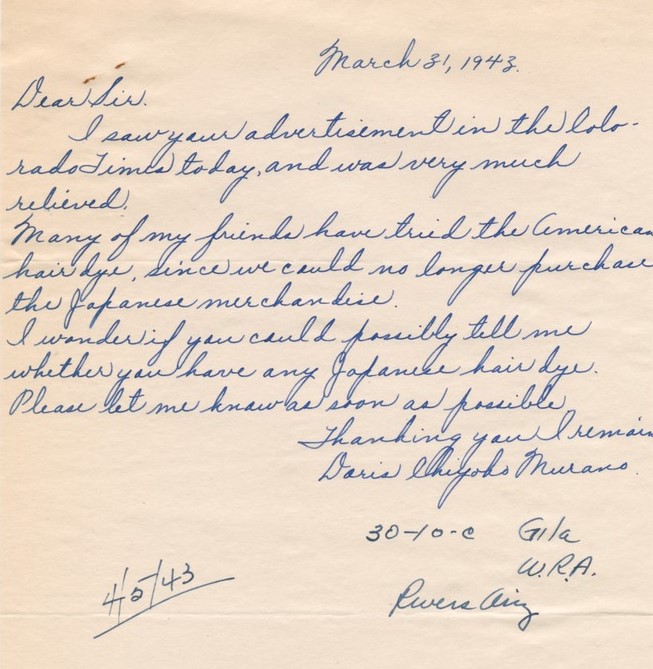 March 31, 1943.
Dear Sir.
I saw your advertisement in the Colo-
rado Times today, and was very much
relieved.
Many of my friends have tried the American
hair dye, since we could no longer purchase
the Japanese merchandise.
I wonder if you could possibly tell me
whether you have any Japanese hair dye.
Please let me know as soon as possible
Thanking you I remain
Doris Chiyoko Murano.
30-10-C Gila
W.R.A.
Rivers Ariz
4/5/43